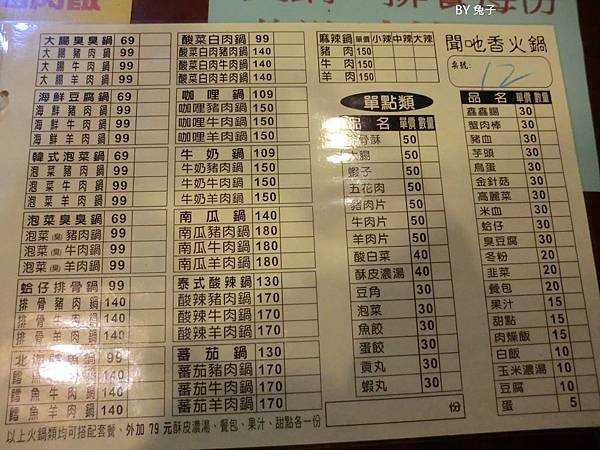 BY 兔子
大腸臭臭鍋 69
大腸豬肉鍋 99
大腸牛肉鍋 99
大腸羊肉鍋 99
海鮮豆腐鍋 69
海鮮豬肉鍋 99
海鮮牛肉鍋 99
海鮮羊肉鍋 99
韓式泡菜鍋 69
泡菜豬肉鍋 99
泡菜牛肉鍋 99
泡菜羊肉鍋 99
泡菜臭臭鍋 69
泡菜(臭)豬肉鍋 99
泡菜(臭)牛肉鍋 99
泡菜(臭)羊肉鍋 99
蛤仔排骨鍋 99
排骨豬肉鍋 140
排骨牛肉鍋 140
排骨羊肉鍋 140
北海鱈魚鍋 99
鱈魚豬肉鍋 140
鱈魚牛肉鍋 140
鱈魚羊肉鍋 140
酸菜白肉鍋 99
酸菜白肉豬肉鍋 140
酸菜白肉牛肉鍋 140
酸菜白肉羊肉鍋 140
咖哩鍋 109
咖哩豬肉鍋 150
咖哩牛肉鍋 150
咖哩羊肉鍋 150
牛奶鍋 109
牛奶豬肉鍋 150
牛奶牛肉鍋 150
牛奶羊肉鍋 150
南瓜鍋 140
南瓜豬肉鍋 180
南瓜牛肉鍋 180
南瓜羊肉鍋 180
泰式酸辣鍋 130
酸辣豬肉鍋 170
酸辣牛肉鍋 170
酸辣羊肉鍋 170
蕃茄鍋 130
蕃茄豬肉鍋 170
蕃茄牛肉鍋 170
蕃茄羊肉鍋 170
麻辣鍋 單價 小辣 中辣 大辣
豬肉 150
牛肉 150
羊肉 150
單點類
品名 單價 數量
排骨酥 50
大腸 50
蝦子 50
五花肉 50
豬肉片 50
牛肉片 50
羊肉片 50
酸白菜 40
酥皮濃湯 40
豆角 30
泡菜 30
魚餃 30
蛋餃 30
貢丸 30
蝦丸 30
份
聞吔香火鍋
桌號: 12
品名 單價 數量
鑫鑫腸 30
蟹肉棒 30
豬血 30
芋頭 30
鳥蛋 30
金針菇 30
高麗菜 30
米血 30
蛤仔 30
臭豆腐 30
冬粉 20
韭菜 20
餐包 20
果汁 15
甜點 15
肉燥飯 15
白飯 10
玉米濃湯 10
豆腐 10
蛋 5
以上火鍋類均可搭配套餐、外加 79 元酥皮濃湯、餐包、果汁、甜點各一份